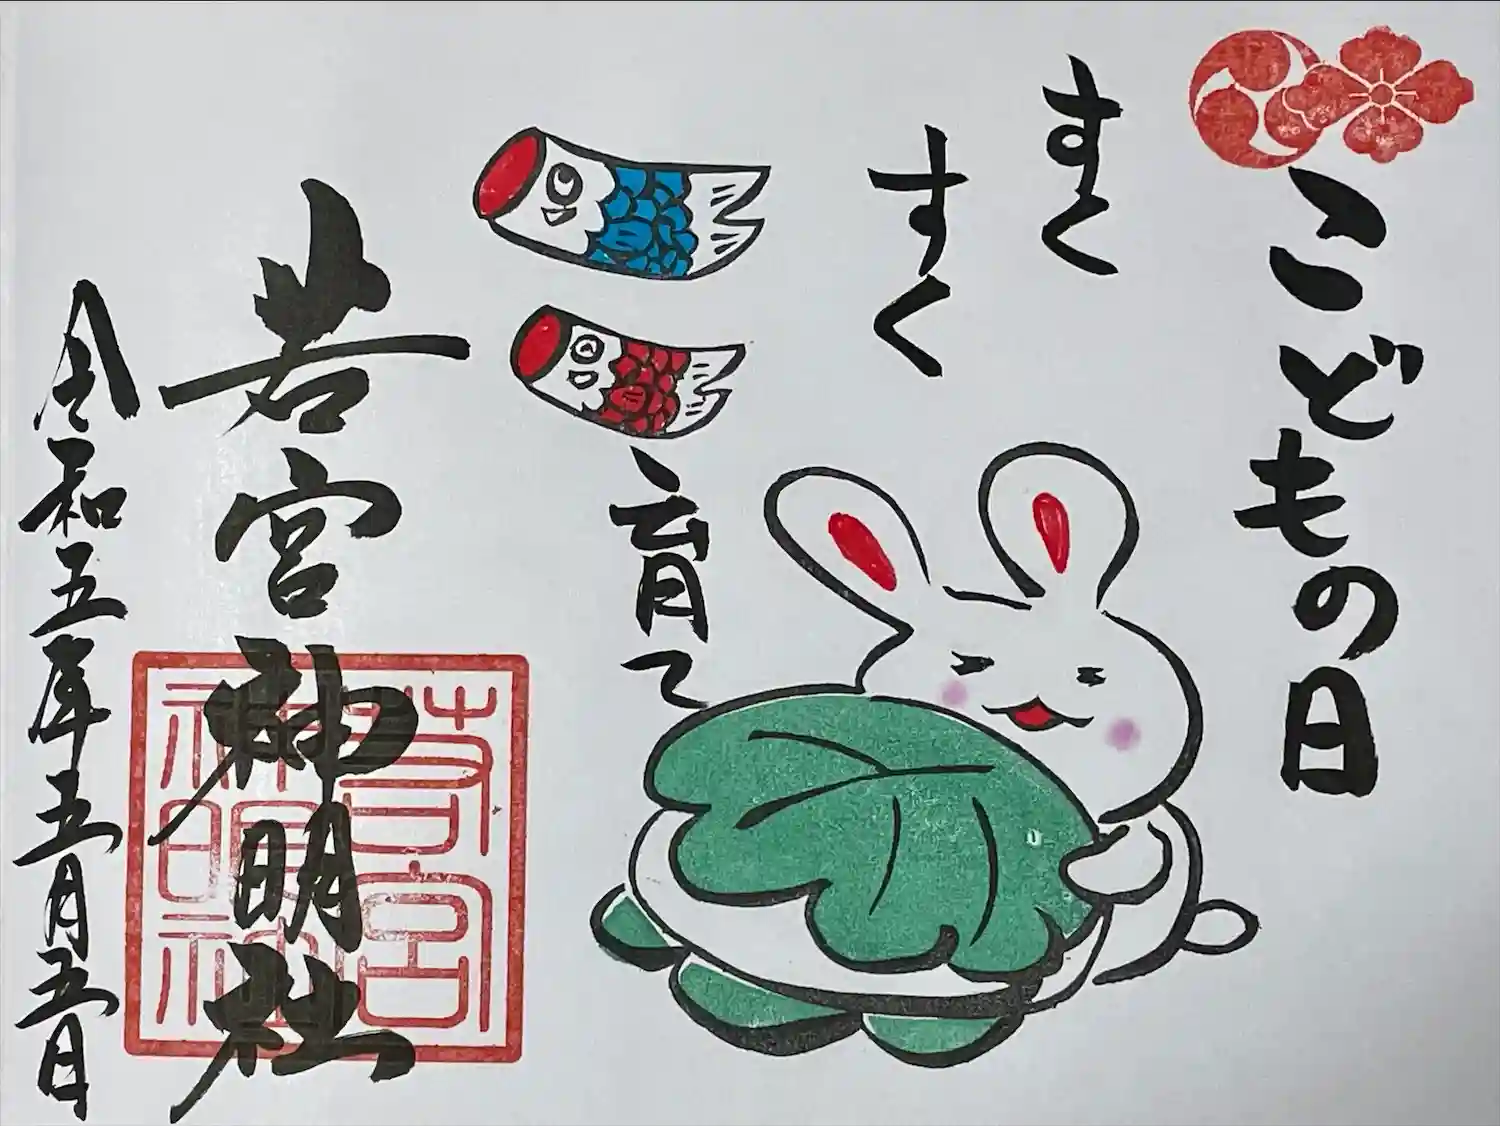 こどもの日
すく
すく
育て
若宮神明社
若宮神明社
令和五年五月五日